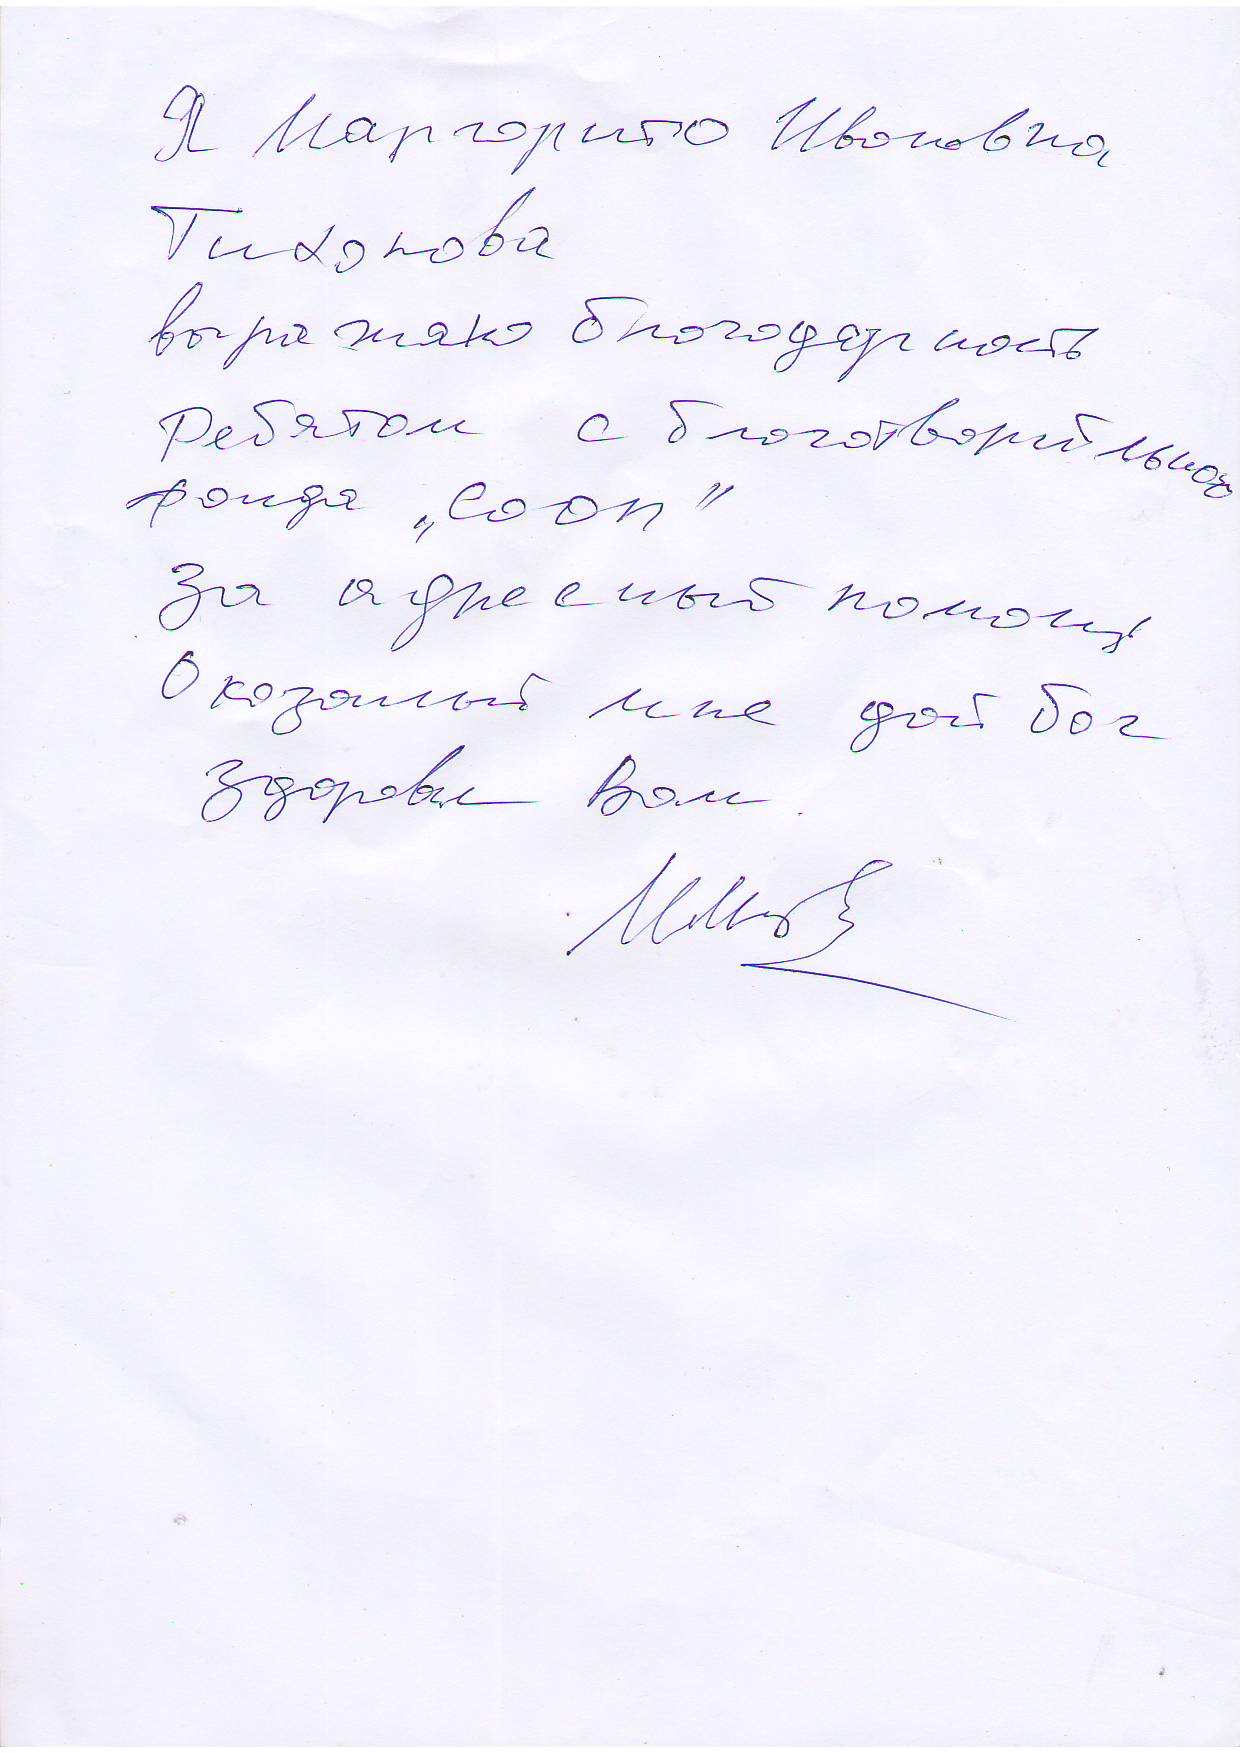 Я Маргорито Ивоновна
Тихонова
выражаю блогодарность
Ребятом с благотворитльного
фонда „Сооп"
За адресный помощь
Оказаный мне дой бог
Здоровья Вам